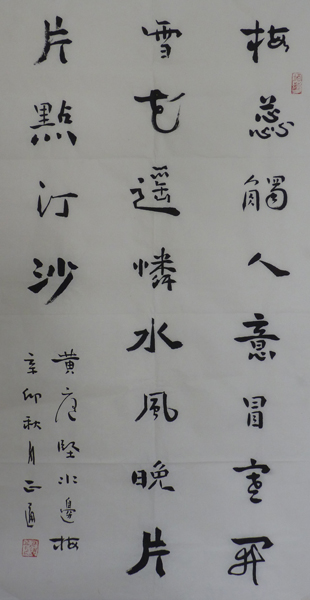 梅蕊觸人意冒寒開
雪花遙憐水風晚片
片點汀沙
黄庭堅水邊梅
辛卯秋月正通